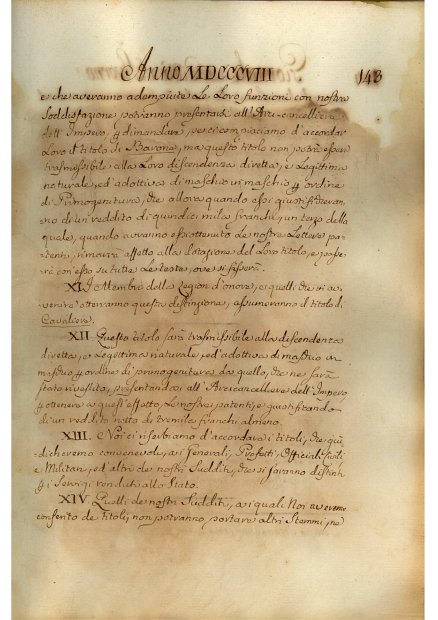 Anno MDCCCVIII 143
e che averanno adempiute le Loro funzioni con nostra
Soddisfazione potranno presentarsi all'Arcicancelliere
dell'Impero, e dimandare, perciò compiaciamo d'accordar
Loro il titolo di Barone, ma questo titolo non potrà esser
trasmissibile alla Loro discendenza diretta, e Legittima
naturale, ed adottiva di maschio in maschio p ordine
di Primogenitura, che allora quando essi giustificheran-
no di un reddito di quindici mila franchi, un terzo della
quale, quando avranno essi ottenuto le nostre Lettere pa-
tenti, rimarrà affetto alla dotazione del Loro titolo, e passe-
rà con esso su tutte le teste, ove si fisserà.
XI. I Membri della Legion d'onore, e quelli che in av-
venire otterranno questa distinzione, assumeranno il titolo di
Cavaliere.
XII. Questo titolo sarà trasmissibile alla discendenza
diretta, e Legittima naturale, ed adottiva di maschio in
maschio p ordine di primogenitura da quello, che ne sarà
stato rivestito, presentandosi all'Arcicancelliere dell'Impero,
p ottenere a quest'effetto, le nostre patenti, e giustificando
di un reddito netto di tre mila franchi almeno.
XIII. Noi ci riserbiamo d'accordare i titoli, che giu-
dicheremo convenevole, ai Generali, Prefetti, Officiali Civili
e Militari, ed altri de nostri Sudditi, che si saranno distinti
p i Servigi renduti allo Stato.
XIV. Quelli de nostri Sudditi, a i quali Noi averemo
conferito de titoli, non potranno portare altri Stemmi, ne